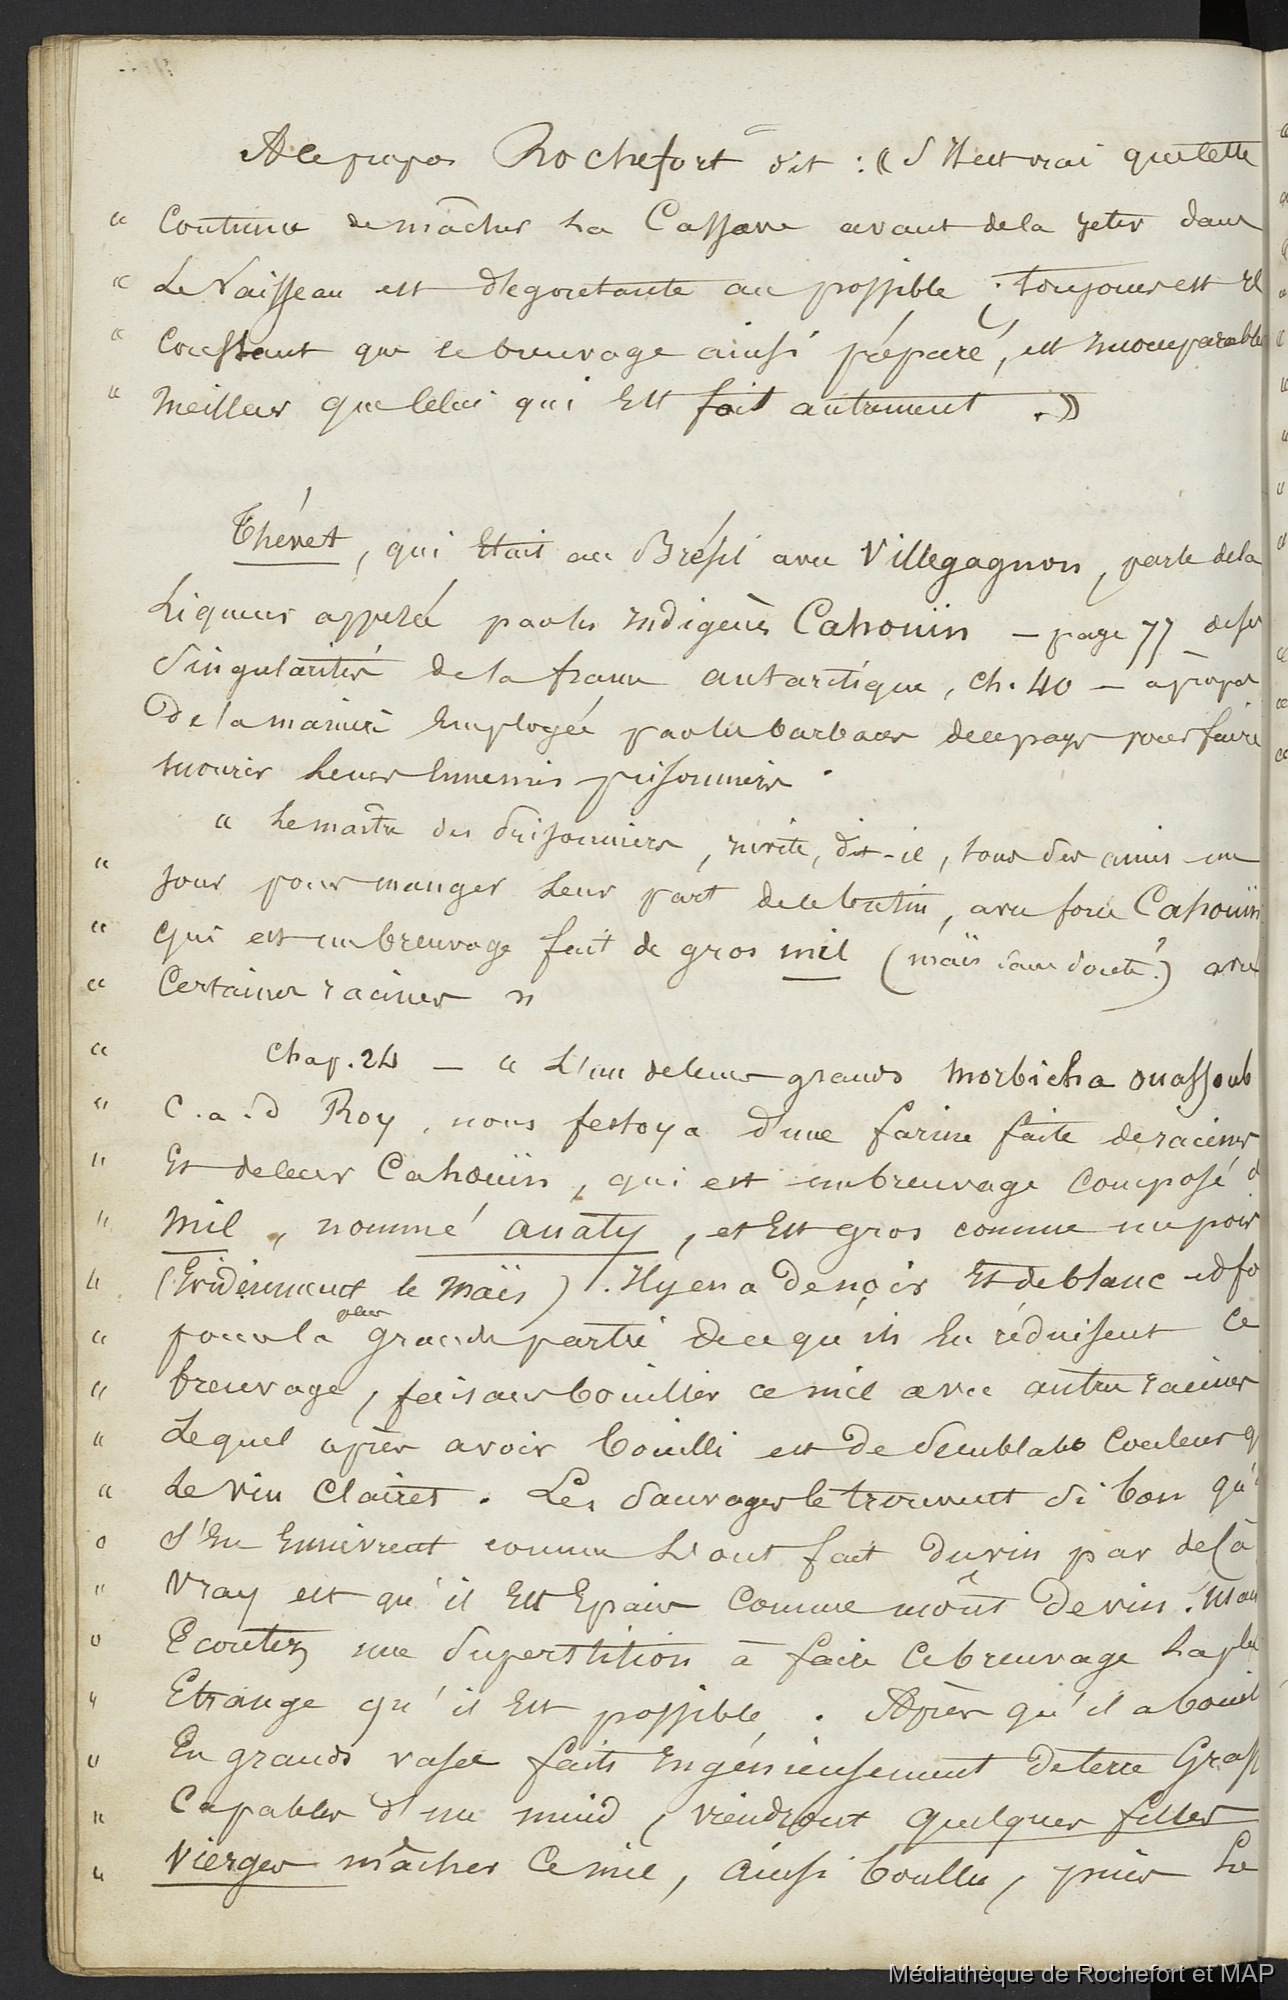 A ce propos Rochefort dit : « S'il est vrai que cette
" Coutume de mâcher la Cassave avant de la jeter dans
" Le Vaisseau est dégoutante au possible ; toujours est il
" Constant que ce breuvage ainsi préparé, est incomparable
" Meilleur que celui qui Est fait autrement . »
Thévet, qui Etait au Brésil avec Villegagnon, parle de la
Liqueur appelée par les indigènes Cahouin — page 77 de ses
Singularités de la france antarctique, ch. 40 — à propos
De la manière Employée par les barbares de ce pays pour faire
mourir leurs Ennemis prisonniers .
" Le maître des Prisonniers, invite, dit-il, tous ses amis un
" jour pour manger leur part de ce butin, avec force Cahouin
" qui est un breuvage fait de gros mil (maïs sans doute ?) avec
" Certaines racines »
" Chap. 24 — " L'un de leurs grands Morbicha ouassoub
" C.a.d Roy, nous festoya d'une farine faite de racines
" Et de leur Cahouin, qui est un breuvage Composé d
" Mil, nommé anaty, et Est gros comme un poix
" (Evidemment le Maïs) . Il y en a De noir Et de blanc et fo
" pour la plus grande partie de ce qu'ils En réduisent Ce
" breuvage, faisans bouillir ce mil avec autres racines
" Lequel après avoir bouilli est De semblable Couleur q
" Le Vin Clairet . Les Sauvages le trouvent si bon qu'
" S'En Ennivrent comme L'ont fait Du vin par deçà
" Vray est qu'il Est Epais Comme moût De vin . Mais
" Ecoutez une Superstition à faire Ce breuvage La plus
" Etrange qu'il Est possible . Après qu'il a bouil
" En grands vases faits Ingénieusement De terre Grass
" Capables d'un muid, viendront quelques filles
" Vierges mâcher Ce mil, ainsi boullu, puis Le
Médiathèque de Rochefort et MAP